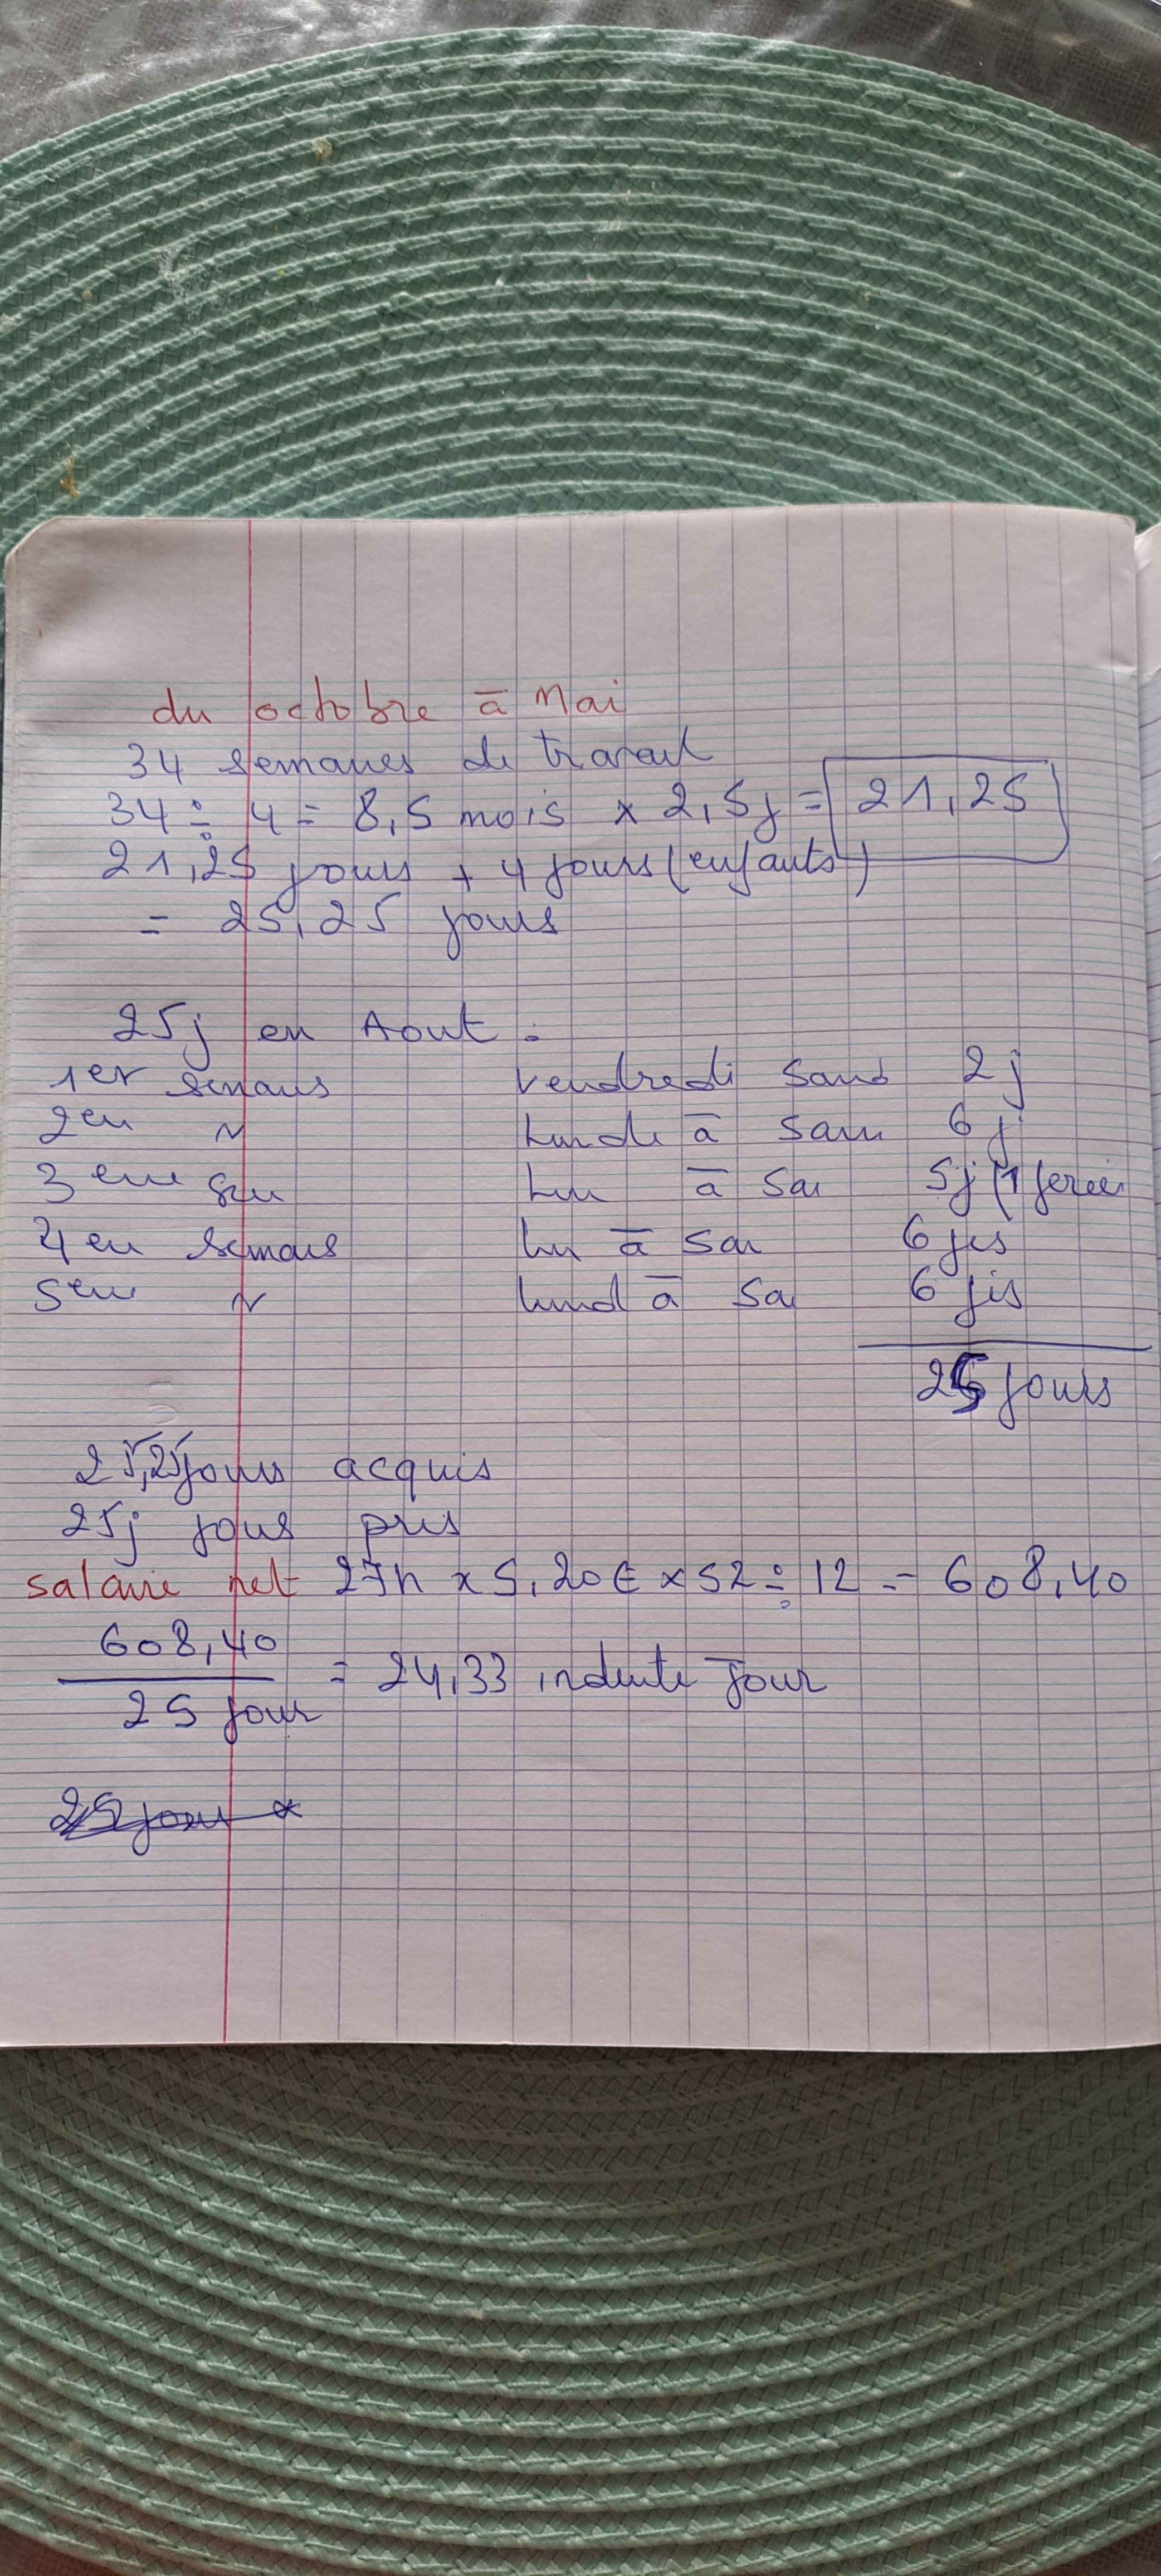 du octobre à Mai
34 semaines de travail
34 ÷ 4 = 8,5 mois x 2,5j = 21,25
21,25 jours + 4 jours (enfants)
= 25,25 jours
25j en Aout :
1er semaus vendredi samd 2j
2em " Lundi à sam 6j
3 eme sem Lun à Sa 5j (1 ferié
4 em semais Lu à sa 6 jrs
5em " lund à Sa 6 jrs
25 jours
25,25 jours acquis
25j jous pris
salaire net 27h x 5,20€ x 52 ÷ 12 = 608,40
608,40
25 jour
= 24,33 indemte Jour
25 jour x